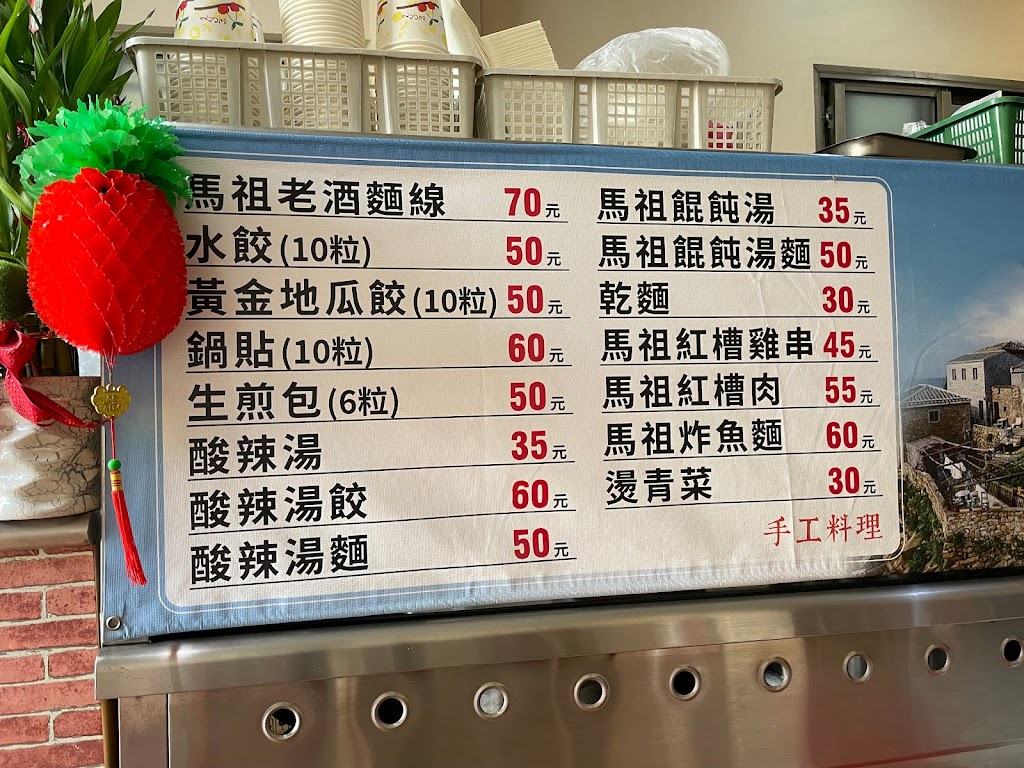 馬祖老酒麵線 70元
水餃(10粒) 50元
黃金地瓜餃(10粒) 50元
鍋貼(10粒) 60元
生煎包(6粒) 50元
酸辣湯 35元
酸辣湯餃 60元
酸辣湯麵 50元
馬祖餛飩湯 35元
馬祖餛飩湯麵 50元
乾麵 30元
馬祖紅槽雞串 45元
馬祖紅槽肉 55元
馬祖炸魚麵 60元
燙青菜 30元
手工料理